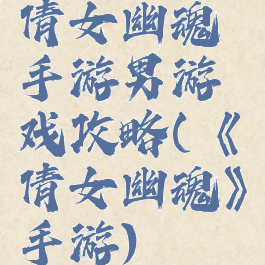 倩女幽魂
手游男游
戏攻略(《
倩女幽魂》
手游)